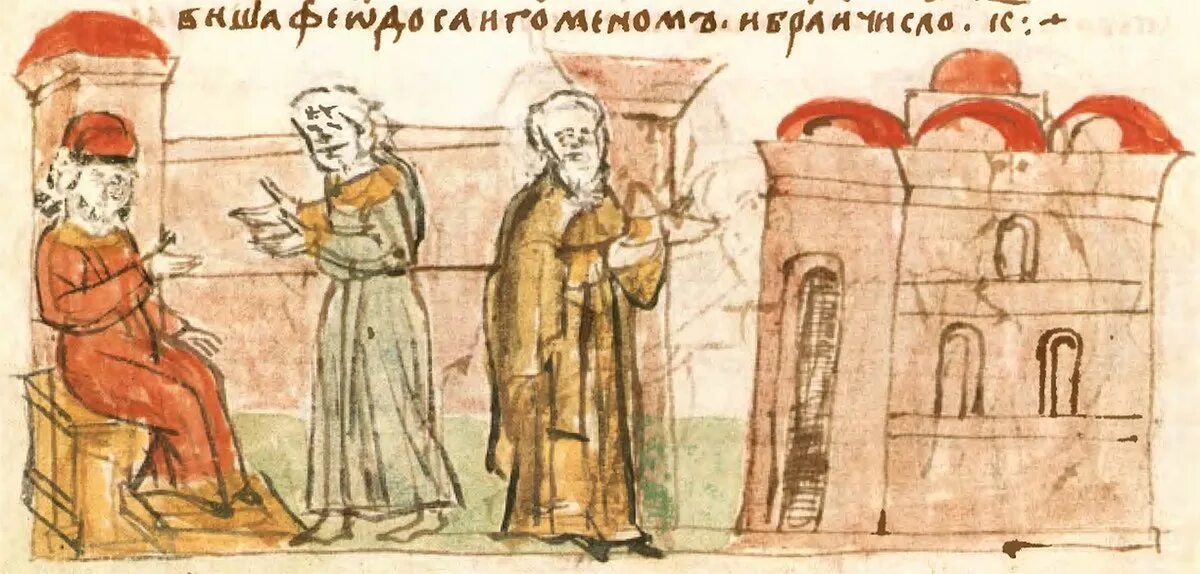 биша феѡдоса нгоменомъ. нбраи число. к:~